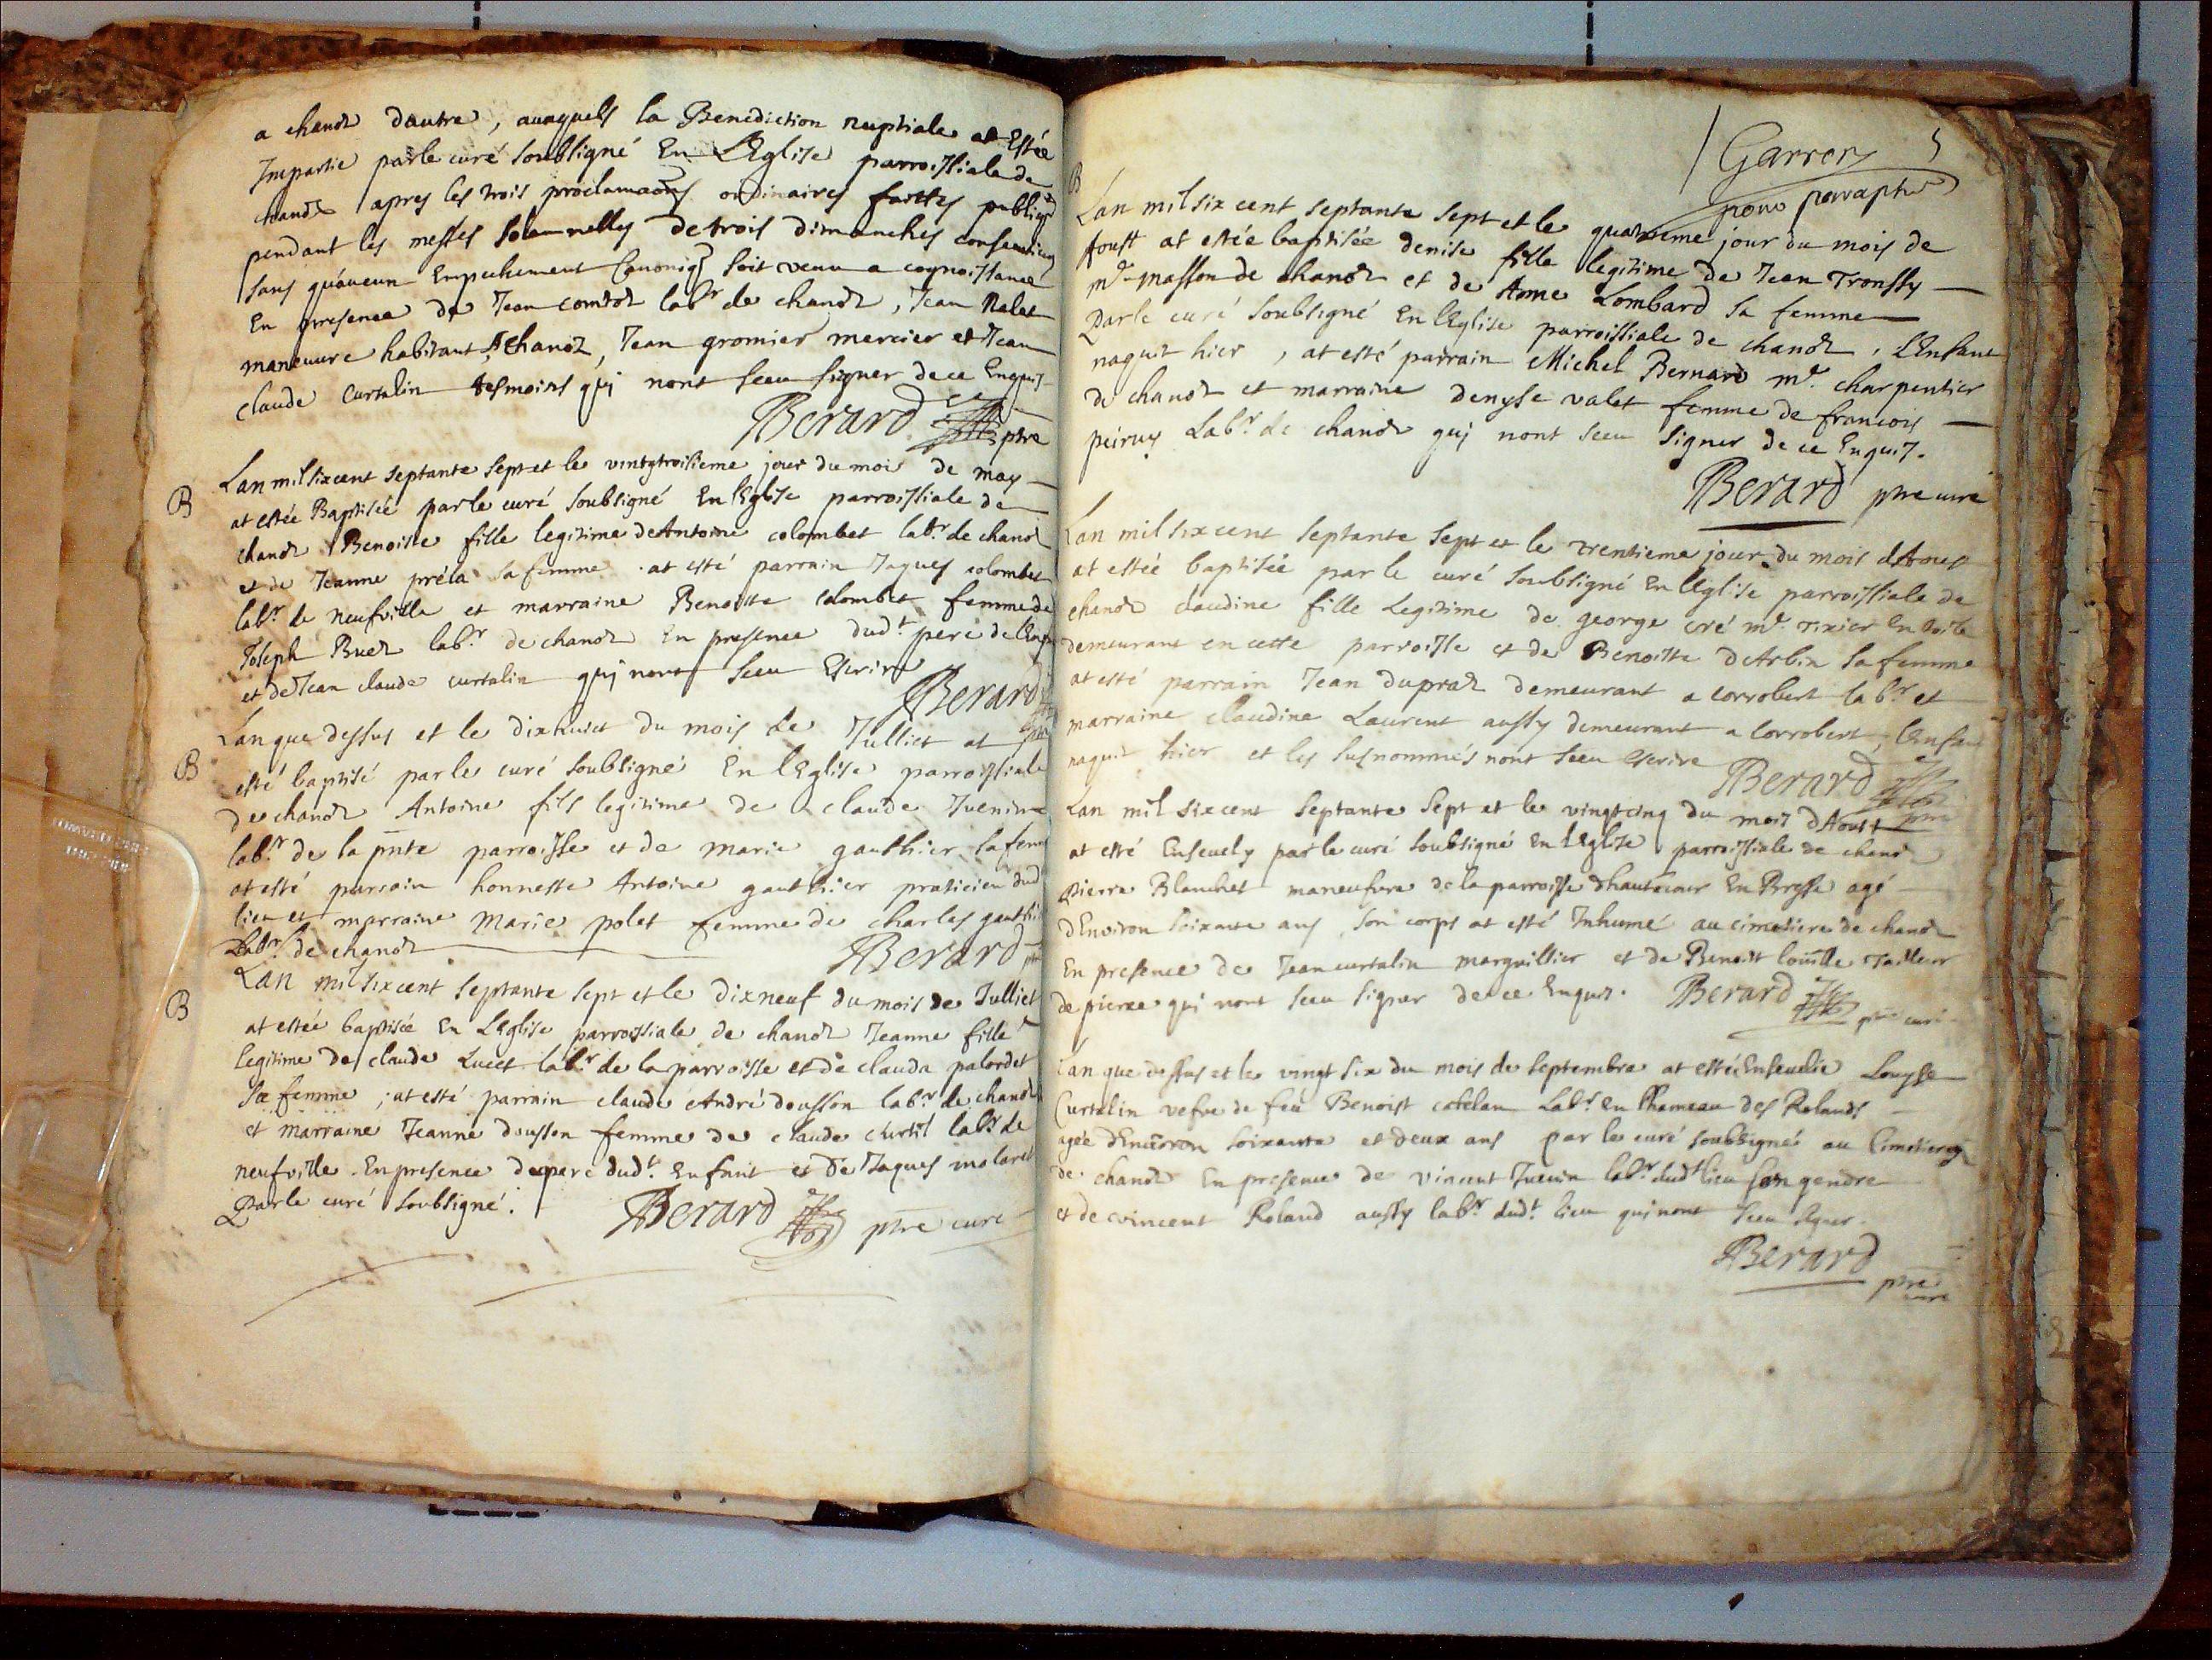 a chanoz dautre, auxquels la Benediction nuptiale at Estée
Impartie parle curé soubsigné En L'Eglise parroissiale de
chanoz apres les trois proclamaons ordinaires faittes
pendant les messes solemnelles de trois dimanches
sans quaucun Empechement Canoniq soit venu a cognoissance
En presence de Jean labr de chanoz, Jean Nalet
maneuvre habitant a chanoz, Jean gromier mercier et Jean
claude Curtalin tesmoins quj nont sceu signer de ce Enquis
Berard ptre
B
Lan mil sixcent septante sept et le vintgtroisieme jour du mois de may
at estée Baptisée parle curé soubsigné En lEglise parroissiale de
chanoz Benoiste fille legitime de Antoine colombet labr. de chanoz
et de Jeanne préla sa femme. at esté parrain Jaques colombet
labr. de neufville et marraine Benoiste colombet femme de
Joseph Buer labr de chanoz En presence dudt. pere de
et de Jean claude curtalin quj nont sceu Escrire
Berard
B
Lan que dessus et le dixhuict du mois de Julliet at
esté baptisé parle curé soubsigné En l'Eglise parroissiale
de chanoz Antoine fils legitime de claude Juenin
labr. de la pnte parroisse et de marie gauthier sa
at esté parrain honneste Antoine gauthier praticien dud
lieu et marraine Marie polet femme de charles
Labr. de chanoz
Berard
B
Lan mil sixcent septante sept et le dixneuf du mois de Julliet
at estée baptisée En L'Eglise parroissiale de chanoz Jeanne fille
legitime de claude Lucet labr de la parroisse et de clauda palordet
Sa femme, at esté parrain claude André dousson labr. de chanoz
et marraine Jeanne dousson femme de claude curtil labr. de
neufville. En presence du pere dudt. Enfant et de Jaques molaret
Parle curé soubsigné.
Berard ptre curé
Garron 5
pour parraphe
B
Lan mil six cent septante sept et le quatrieme jour du mois de
Aoust at estée baptisée denise fille legitime de Jean Tronssy
mr. masson de chanoz et de Anne Lombard sa femme
Parle curé soubsigné En lEglise parroissiale de chanoz, L'Enfant
naquit hier, at esté parrain Michel Bernard mr. charpentier
de chanoz et marraine denyse valet femme de francois
Labr. de chanoz quj nont sceu signer de ce Enquis.
Berard ptre curé
Lan mil sixcent septante sept et le trentieme jour du mois dAoust
at estée baptisée parle curé soubsigné En lEglise parroissiale de
chanoz claudine fille Legitime de george cré mr. tixier En toile
demeurant en cette parroisse et de Benoitte dArbin sa femme
at esté parrain Jean dupraz demeurant a corrobert labr. et
marraine claudine Laurent aussy demeurant a Corrobert, lEnfant
naquit hier et les susnommés nont sceu escrire
Berard
Lan mil sixcent septante sept et le vingtcinq du mois dAoust
at esté Ensevely parle curé soubsigné En lEglise parroissiale de chanoz
pierre Blanchet maneufvre de la parroisse dhautecour En Bresse agé
dEnviron soixante ans son corps at esté Inhumé au cimetiere de chanoz
En presence de Jean curtalin marguillier et de Benoist tailleur
de pierre qui nont sceu signer de ce Enquis. Berard
ptre curé
Lan que dessus et le vingt six du mois de septembre at estée Ensevelie Louyse
Curtalin vefve de feu Benoist catelan Labr. En lhameau des Rolands
agée dEnviron soixante et deux ans par le curé soubsigné au Cimetiere
de chanoz En presence de vincent Juenin labr. dudt lieu son gendre
et de vincent Roland aussy labr. dudt. lieu qui nont sceu signer.
Berard
ptre
curé